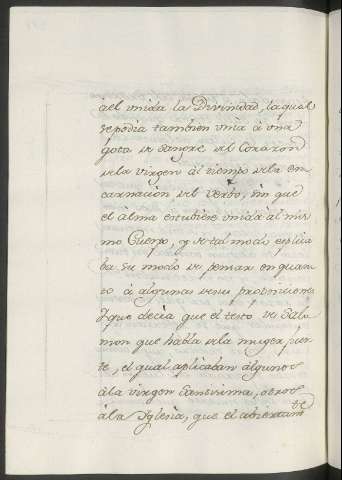 àel vnida la Divinidad, la qual
se podia tambien vnir à vna
gota de sangre del Corazon
dela Virgen al tiempo dela en
carnacion del verbo, sin que
el alma estubiese vnida al mis
mo Cuerpo, y de tal modo esplica
ba su modo de pensar en quan
to à algunas desus proposiciones
Y que decia que el testo de Salo
mon que habla dela muger fuer
te, el qual aplicaban algunos
àla virgen Santisima, otros
àla Yglesia, que el abiertam
te